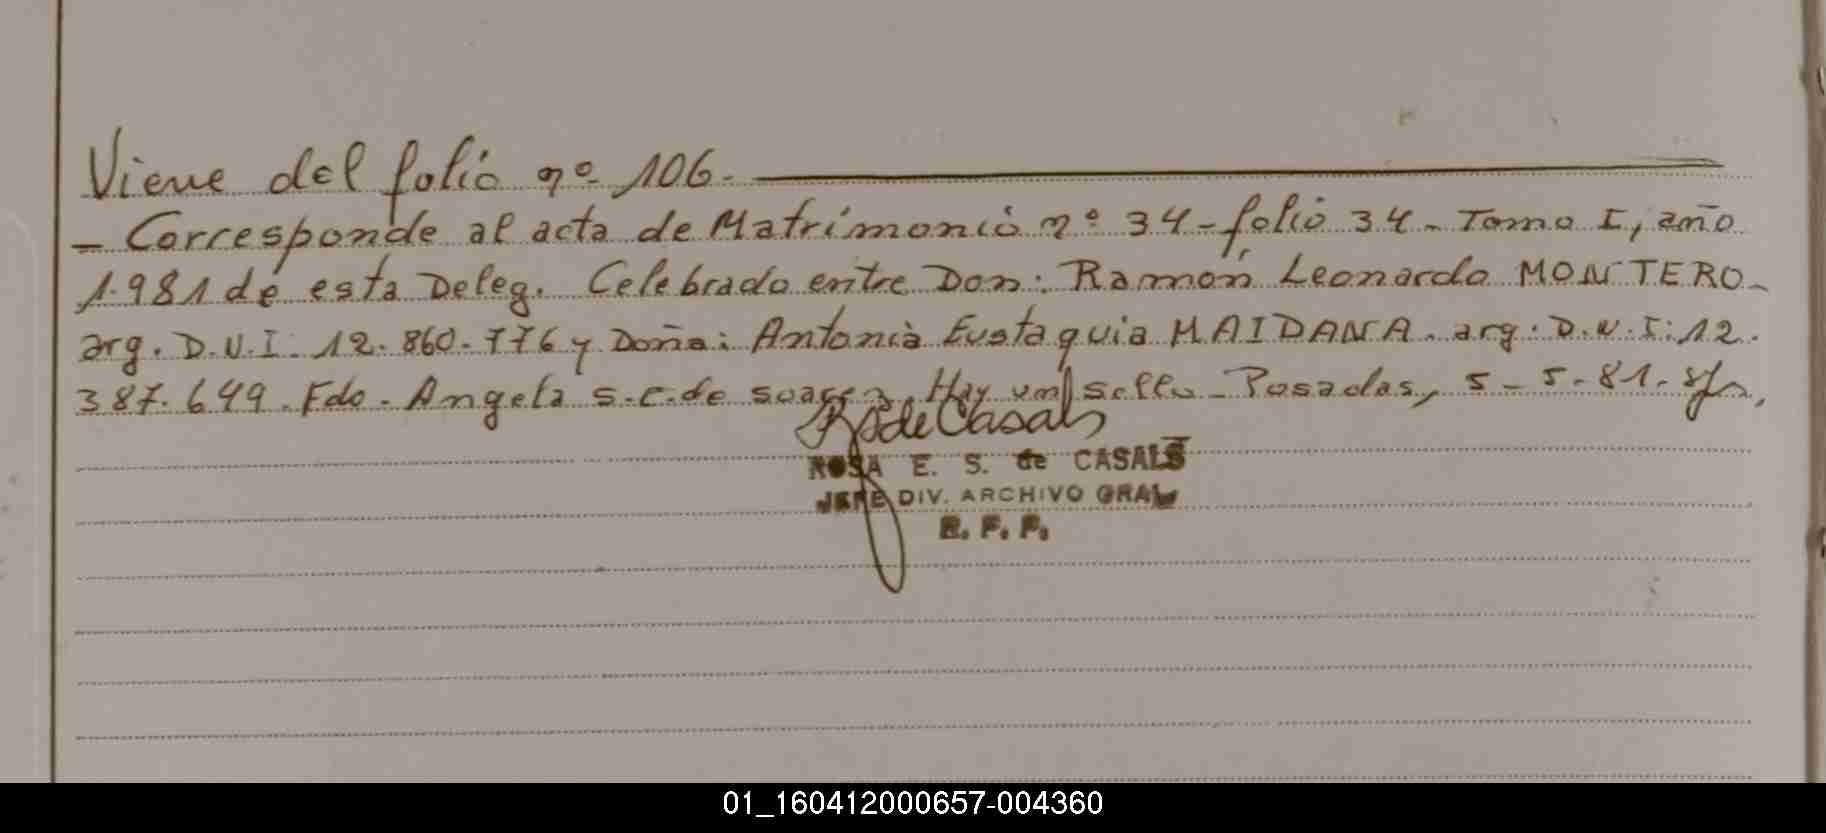 Viene del folio nº 106.
- Corresponde al acta de Matrimonio nº 34 - folio 34 - Tomo I, año
1.981 de esta Deleg. Celebrado entre Don: Ramón Leonardo MONTERO -
arg. D.N.I. 12.860.776 y Doña: Antonia Eustaquia MAIDANA. arg: D.N.I: 12.
387.649. Fdo. Angela S.C. de Soarez. Hay un sello - Posadas, 5-5-81.
RSdeCasals
ROSA E. S. de CASALS
JEFE DIV. ARCHIVO GRAL
R. P. P.
01_160412000657-004360